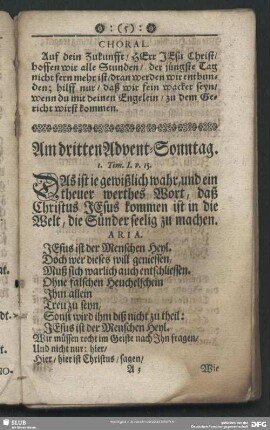 : (5) :
CHORAL.
Auf dein Zukunfft/ HErr JEsu Christ/
hoffen wir alle Stunden/ der jüngste Tag
nicht fern mehr ist/ dran werden wir entbun-
den; hilff nur/ daß wir fein wacker seyn/
wenn du mit deinen Engelein/ zu dem Ge-
richt wirst kommen.
Am dritten Advent-Sonntag.
1. Tim. I. v. 15.
DAs ist ie gewißlich wahr, und ein
theuer werthes Wort, daß
Christus JEsus kommen ist in die
Welt, die Sünder seelig zu machen.
ARIA.
JEsus ist der Menschen Heyl.
Doch wer dieses will geniessen,
Muß sich warlich auch entschliessen.
Ohne falschen Heuchelschein
Ihm allein
Treu zu seyn;
Sonst wird ihm diß nicht zu theil:
JEsus ist der Menschen Heyl.
Wir müssen recht im Geiste nach Ihn fragen/
Und nicht nur: hier/
Hier/ hier ist Christus/ sagen/
A 3 Wie
SLUB